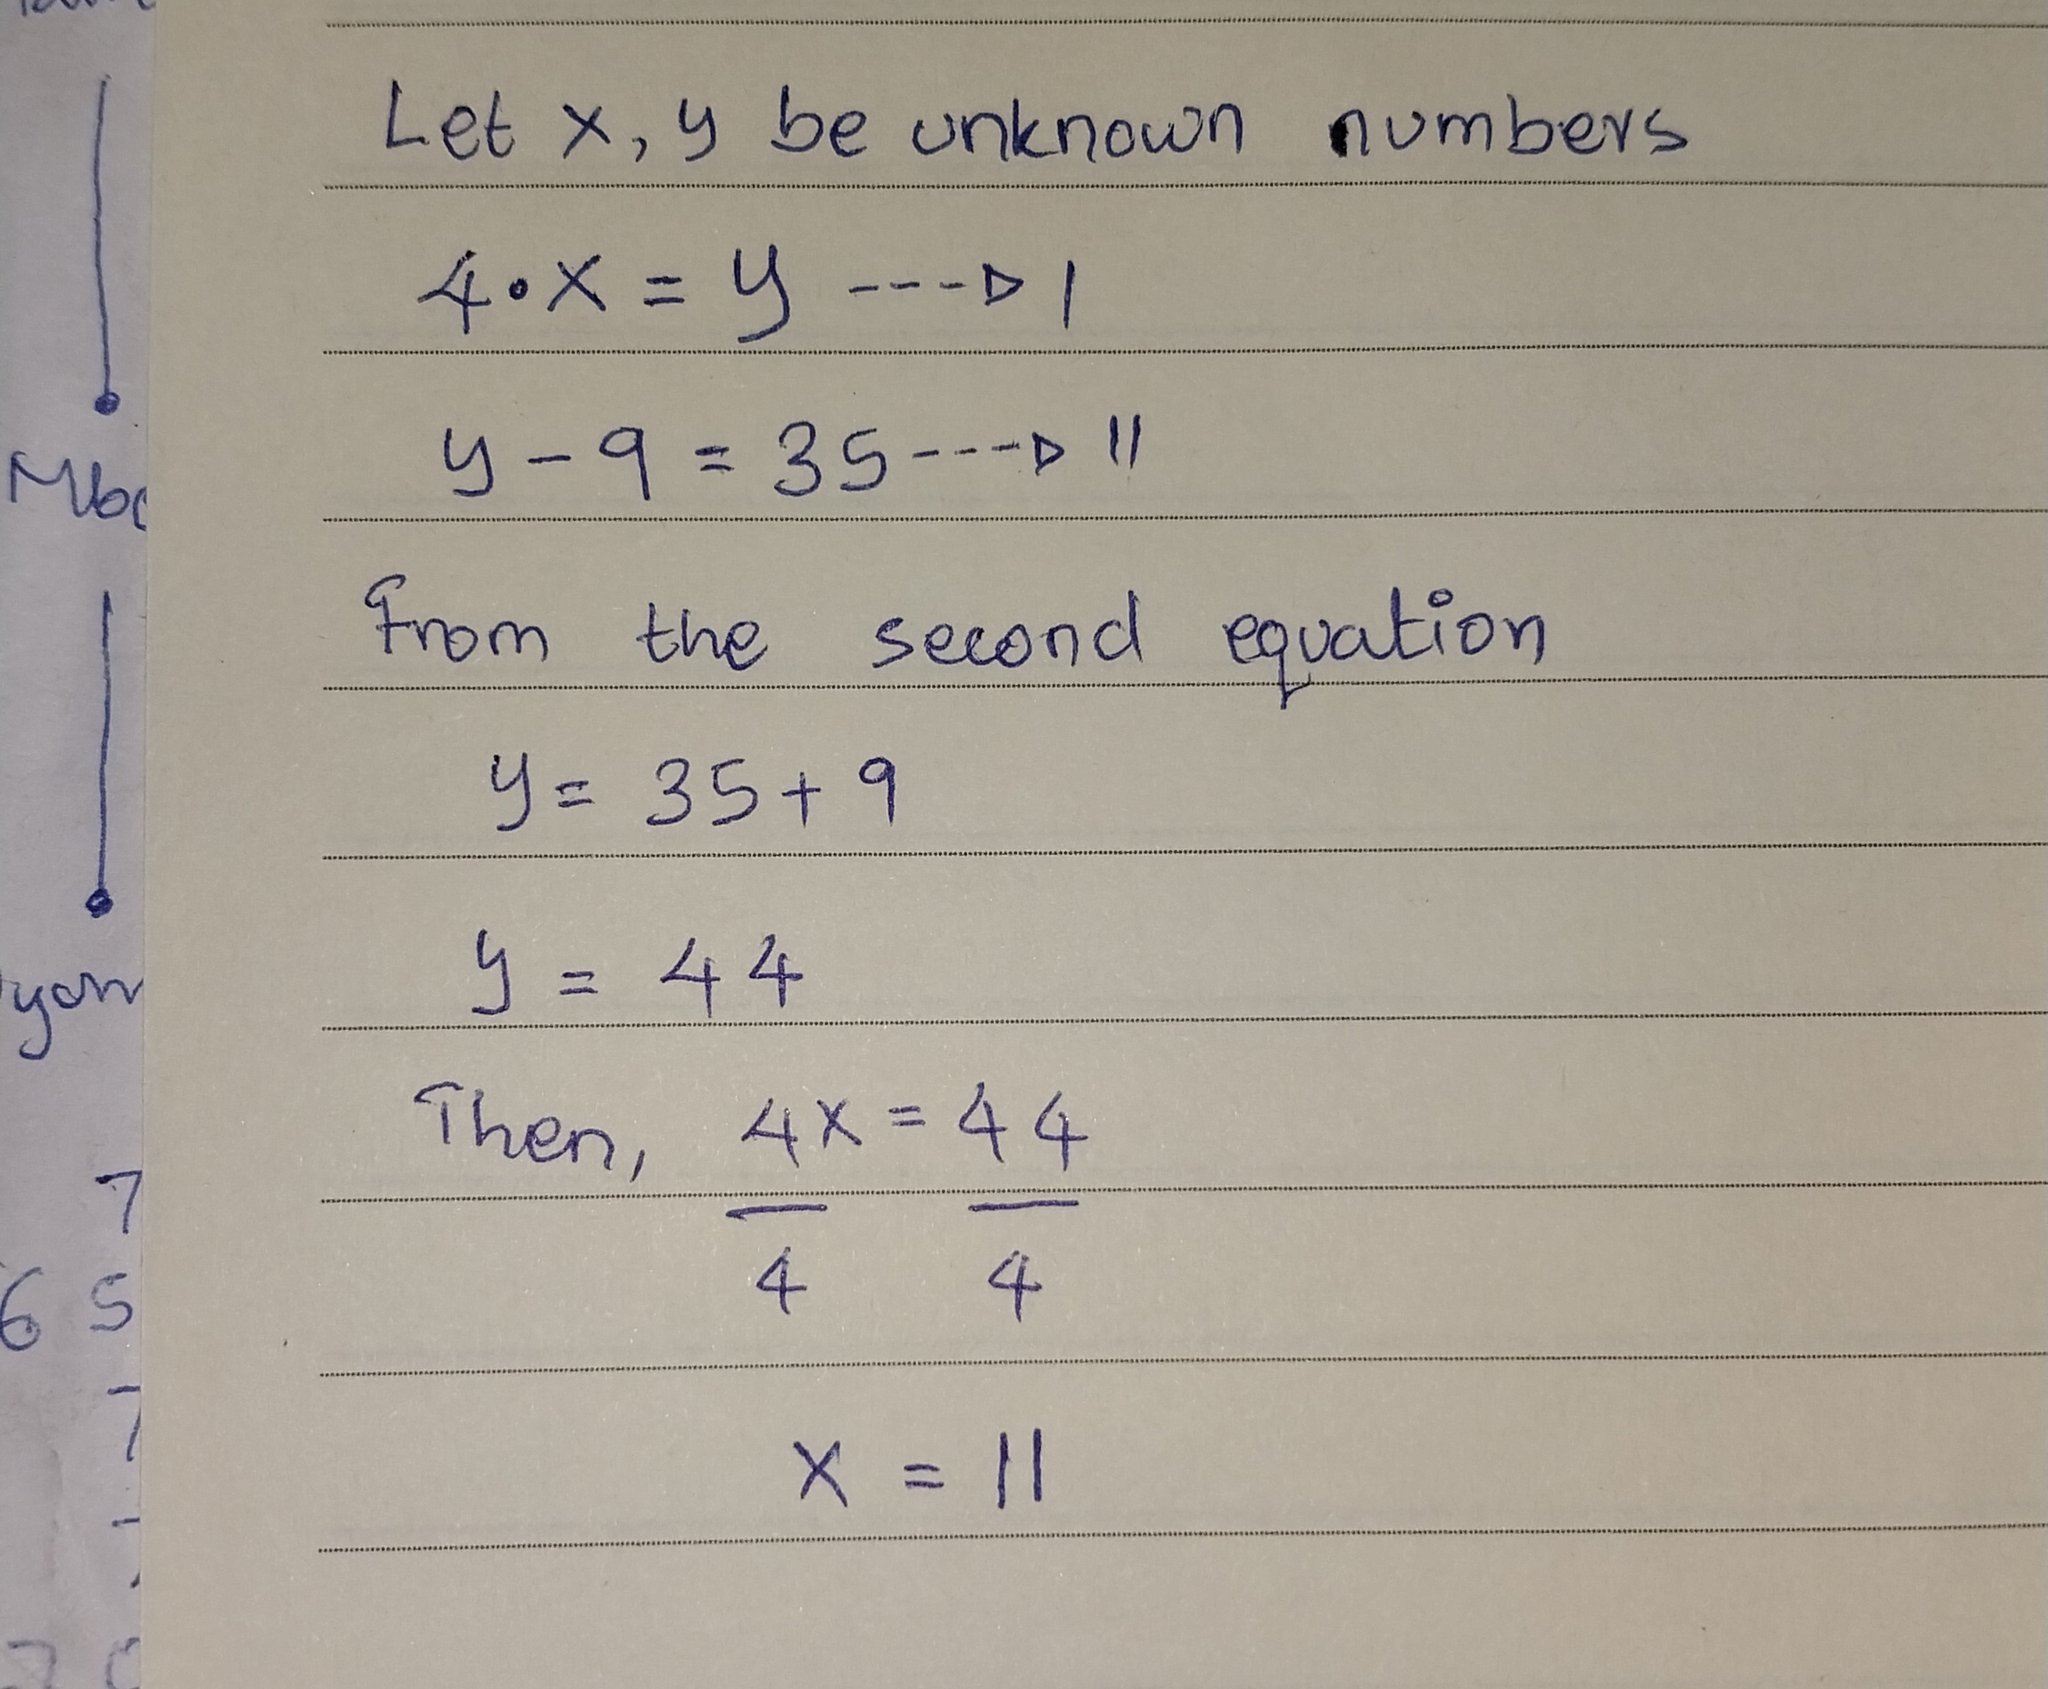 Let x, y be unknown numbers
4•X = y ---▷ I
y - 9 = 35 ---▷ II
From the second equation
y = 35 + 9
y = 44
Then, 4X = 44
4 4
X = 11
7
6 5
7